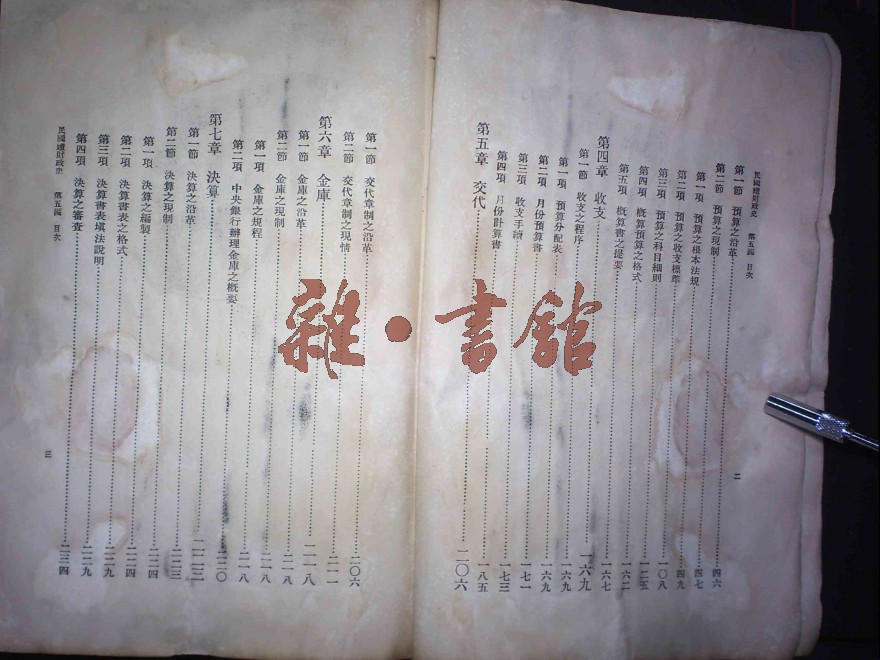 民國續財政史　第五編　目次
第一節　預算之沿革
第二節　預算之現制……四六
第一項　預算之根本法規……四七
第二項　預算之收支標準……四九
第三項　預算之科目細則……一〇八
第四項　概算預算之格式……一二五
第五項　概算書之提要……一六二
第四章　收支……一六九
第一節　收支之程序……一六七
第一項　預算分配表……一六九
第二項　月份預算書……一六九
第三項　收支手續……一七一
第四項　月份計算書……一七三
第五章　交代……二〇六
二
第一節　交代章制之沿革……二〇六
第二節　交代章制之現情……二一一
第六章　金庫……二一八
第一節　金庫之沿革……二一八
第二節　金庫之現制……二一八
第一項　金庫之規程……二一八
第二項　中央銀行辦理金庫之概要……二二〇
第七章　決算……二二二
第一節　決算之沿革……二二二
第二節　決算之現制……二二三
第一項　決算之編製……二二四
第二項　決算書表之格式……二二四
第三項　決算書表填法說明……二二九
第四項　決算之審查……二三四
民國續財政史　第五編　目次
三
雜·書館